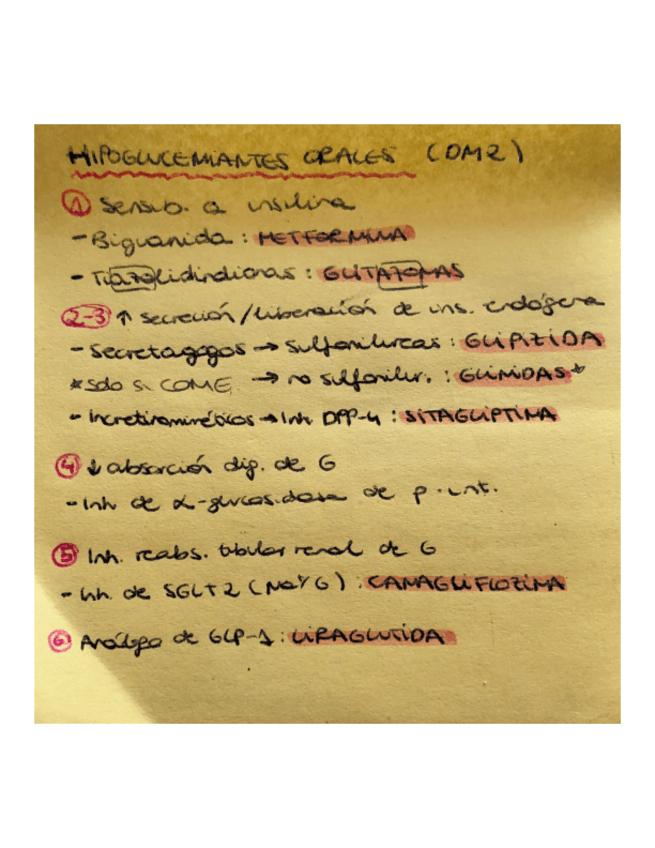 HIPOGLUCEMIANTES ORALES (DM2)
① Sensib. a insulina
- Biguanida : METFORMINA
- Tiazolidindionas : GLITAZONAS
②-③ ↑ secreción/liberación de ins. endógena
- Secretagogos → sulfonilureas : GLIPIZIDA
*solo si COME → no sulfonilur. : GLINIDAS*
- Incretinmiméticos → Inh DPP-4 : SITAGLIPTINA
④ ↓ absorción dig. de G
- Inh de α-glucosidasa de p. int.
⑤ Inh. reabs. tubular renal de G
- Inh. de SGLT2 (Na+/G) : CANAGLIFLOZINA
⑥ Análogo de GLP-1 : LIRAGLUTIDA